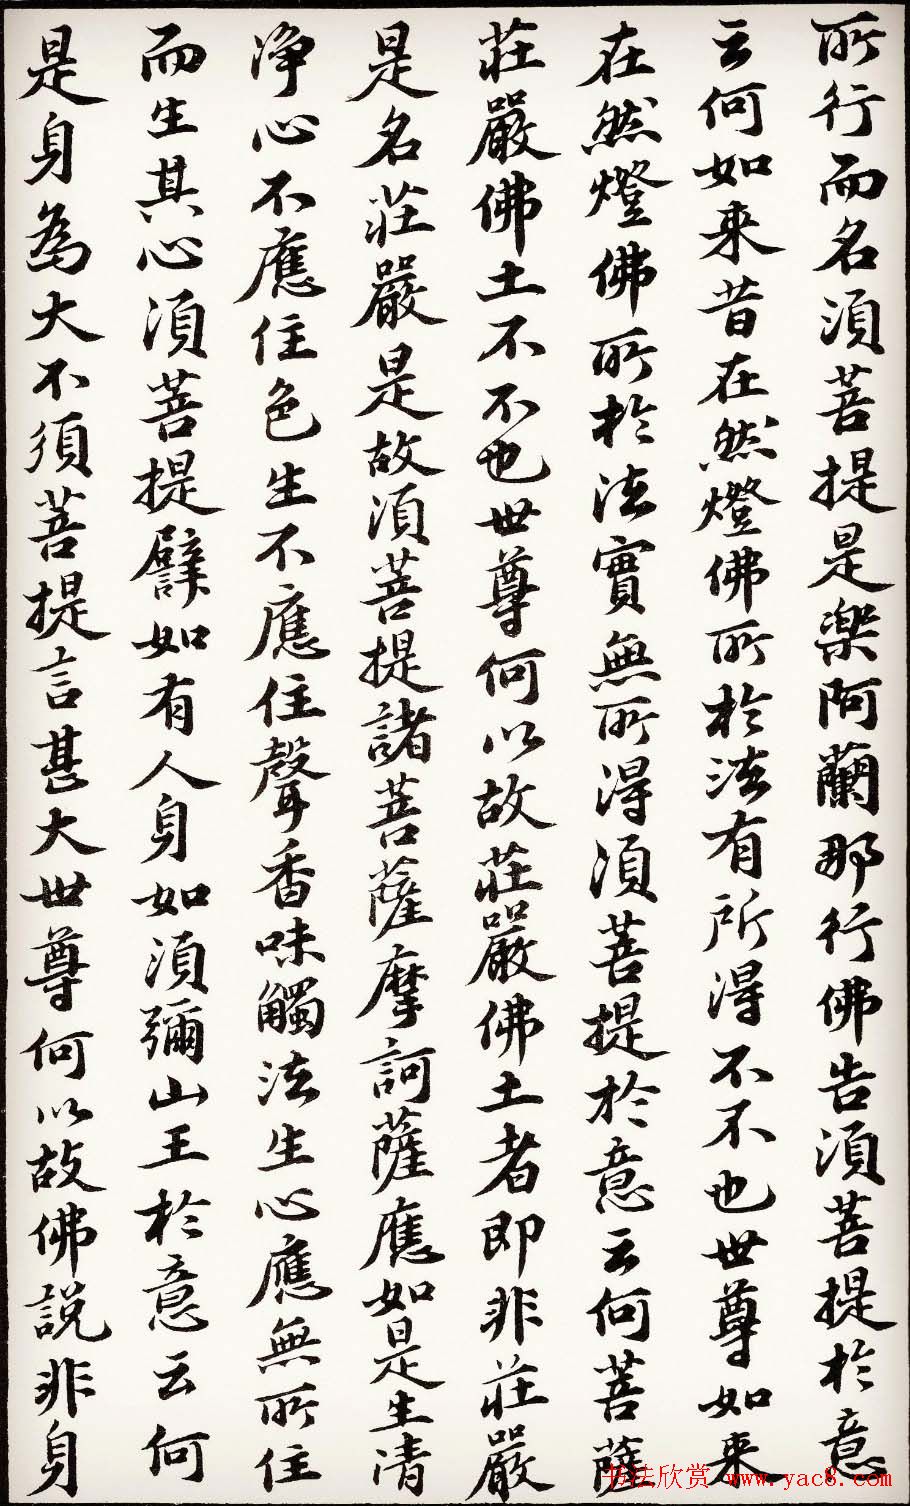 所行而名須菩提是樂阿蘭那行佛告須菩提於意
云何如来昔在然燈佛所於法有所得不不也世尊如来
在然燈佛所於法實無所得須菩提於意云何菩薩
莊嚴佛土不不也世尊何以故莊嚴佛土者即非莊嚴
是名莊嚴是故須菩提諸菩薩摩訶薩應如是生清
净心不應住色生不應住聲香味觸法生心應無所住
而生其心須菩提譬如有人身如須彌山王於意云何
是身為大不須菩提言甚大世尊何以故佛說非身
书法欣赏 www.yac8.com